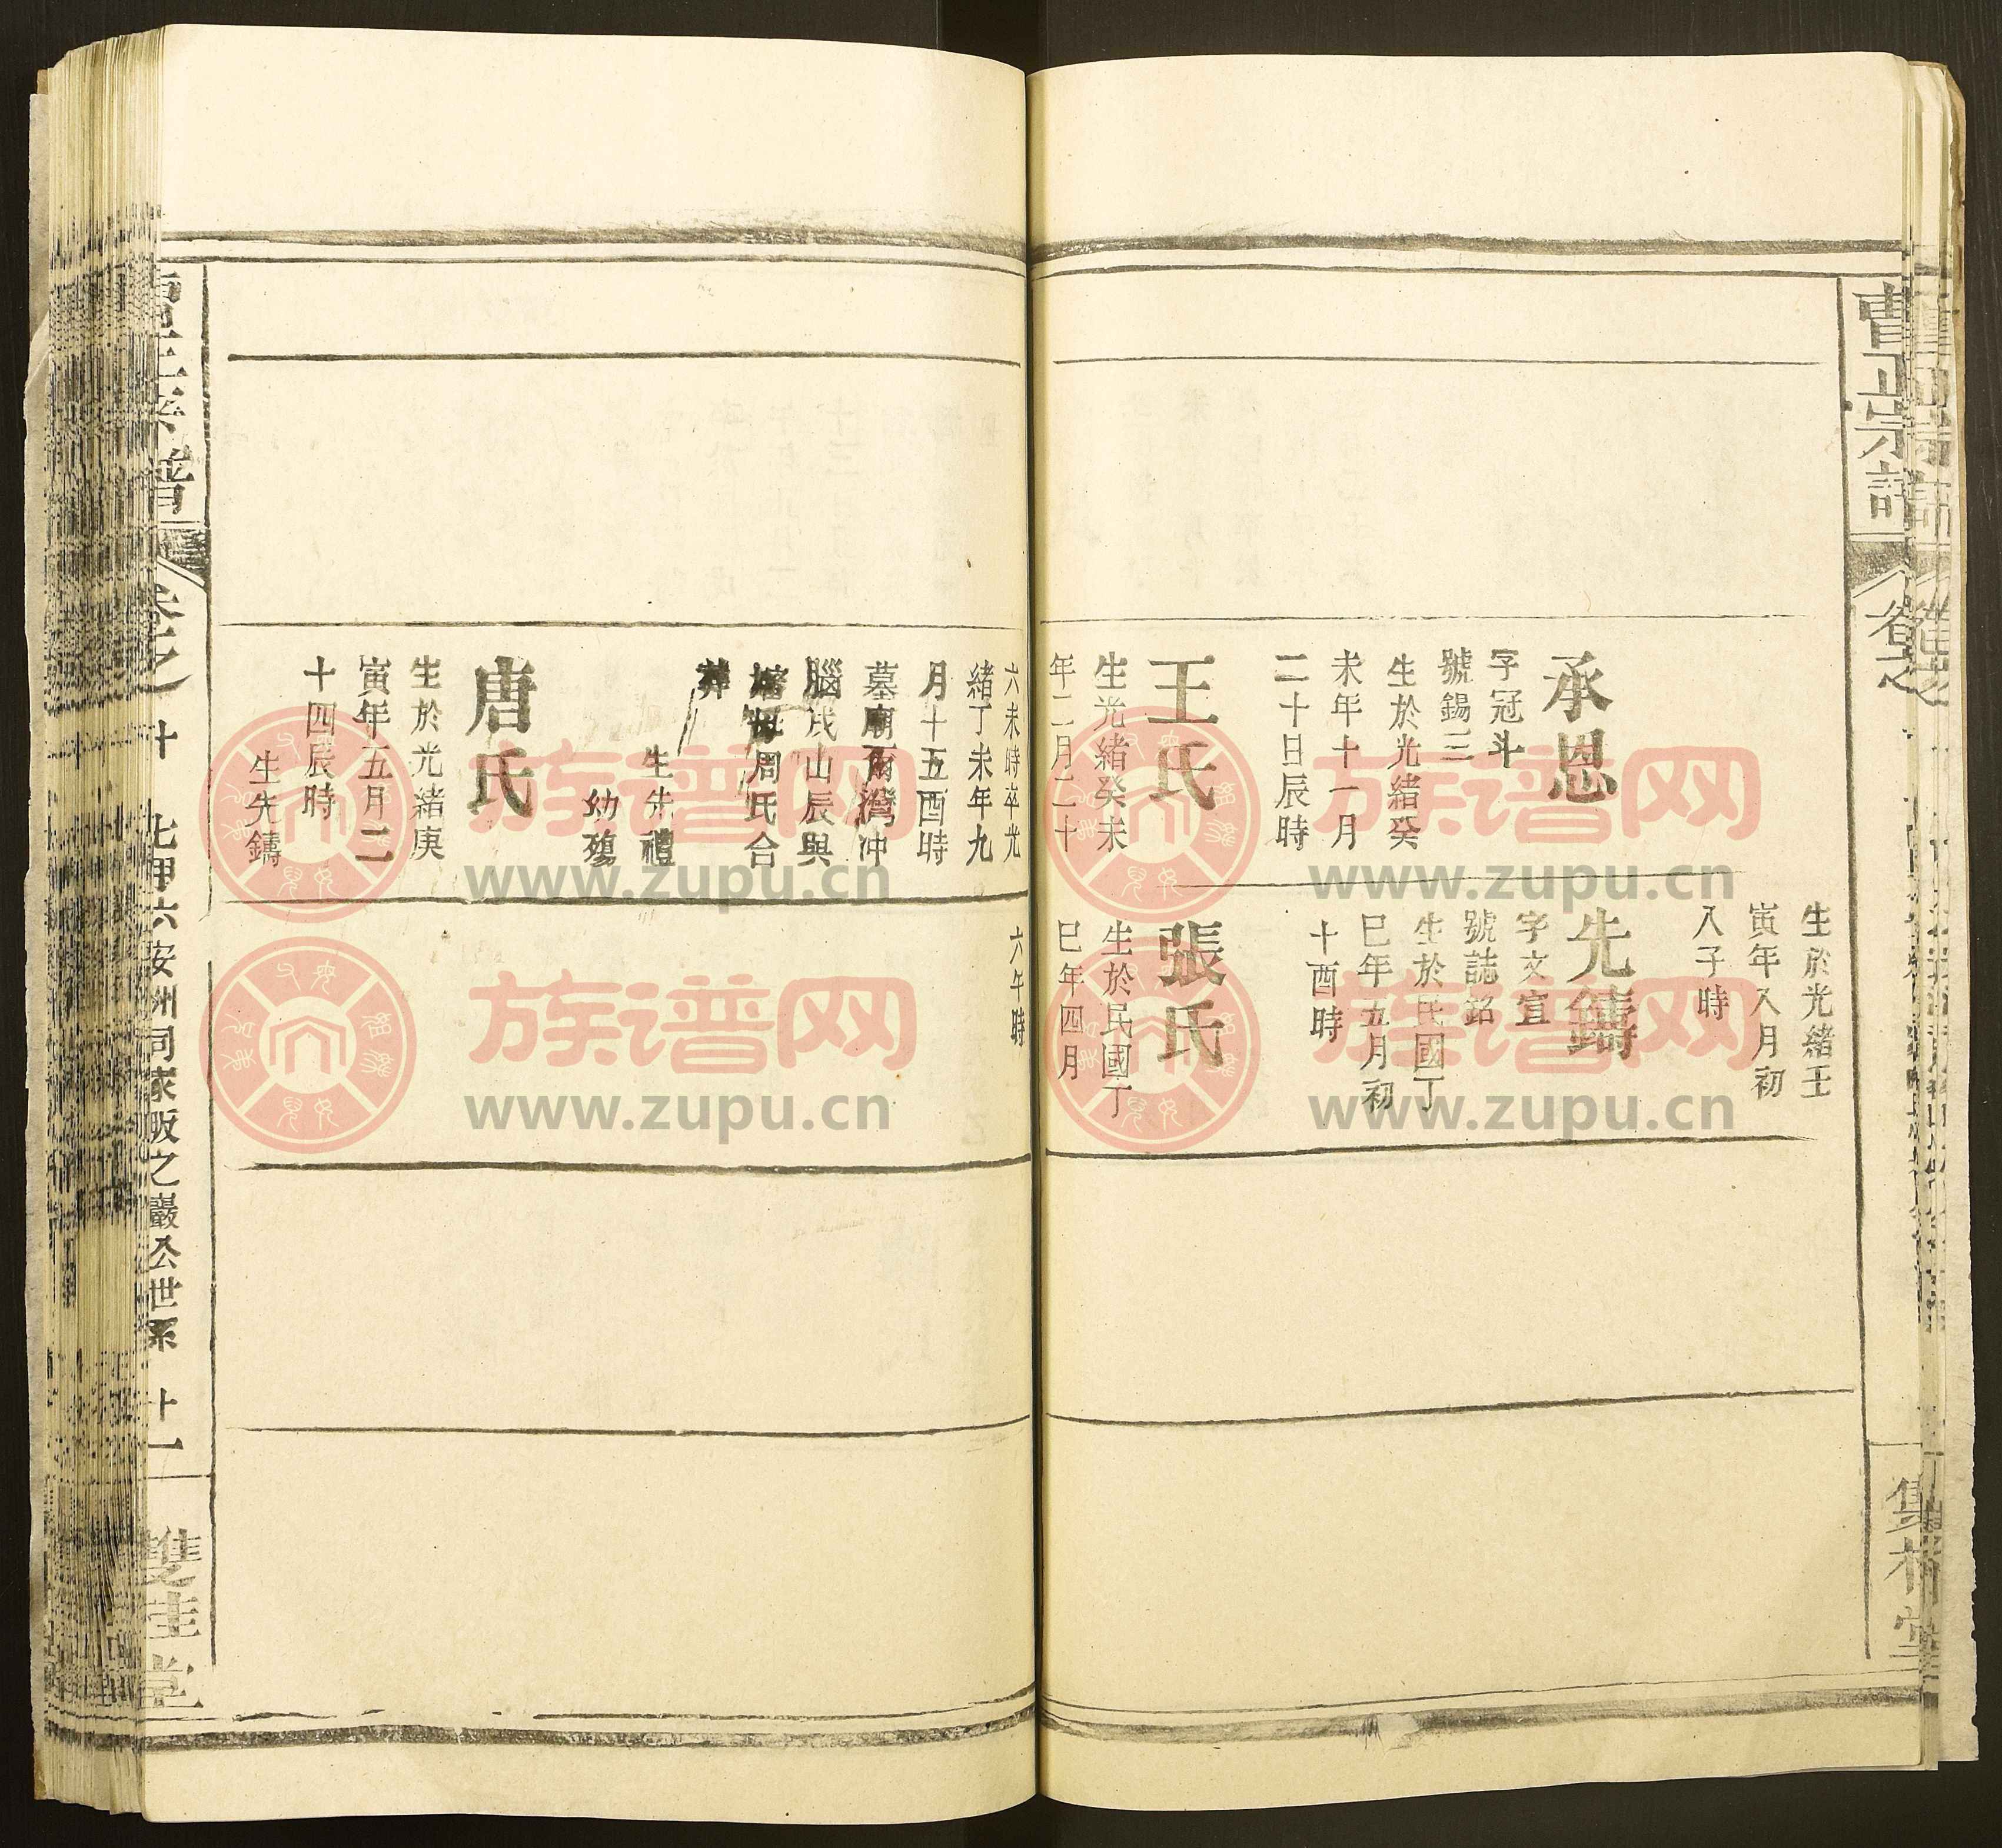 曹正宗譜
承恩
字冠斗
號錫三
生於光緒癸
未年十一月
二十日辰時
王氏
生光緒癸未
年二月二十
六未時卒光
緒丁未年九
月十五酉時
墓廟爾灣冲
腦戌山辰與
嬸母周氏合
葬
生先禮
幼殤
唐氏
生於光緒庚
寅年五月二
十四辰時
生先鑄
生於光緒壬
寅年入月初
入子時
先鑄
字文宣
號誌銘
生於民國丁
巳年五月初
十酉時
張氏
生於民國丁
巳年四月
六午時
集桥堂
曹正宗譜
卷之 廿 七甲六安州同家畈之巖公世系 廿一
雙桂堂
族谱网
www.zupu.cn
族谱网
www.zupu.cn
族谱网
www.zupu.cn
族谱网
www.zupu.cn